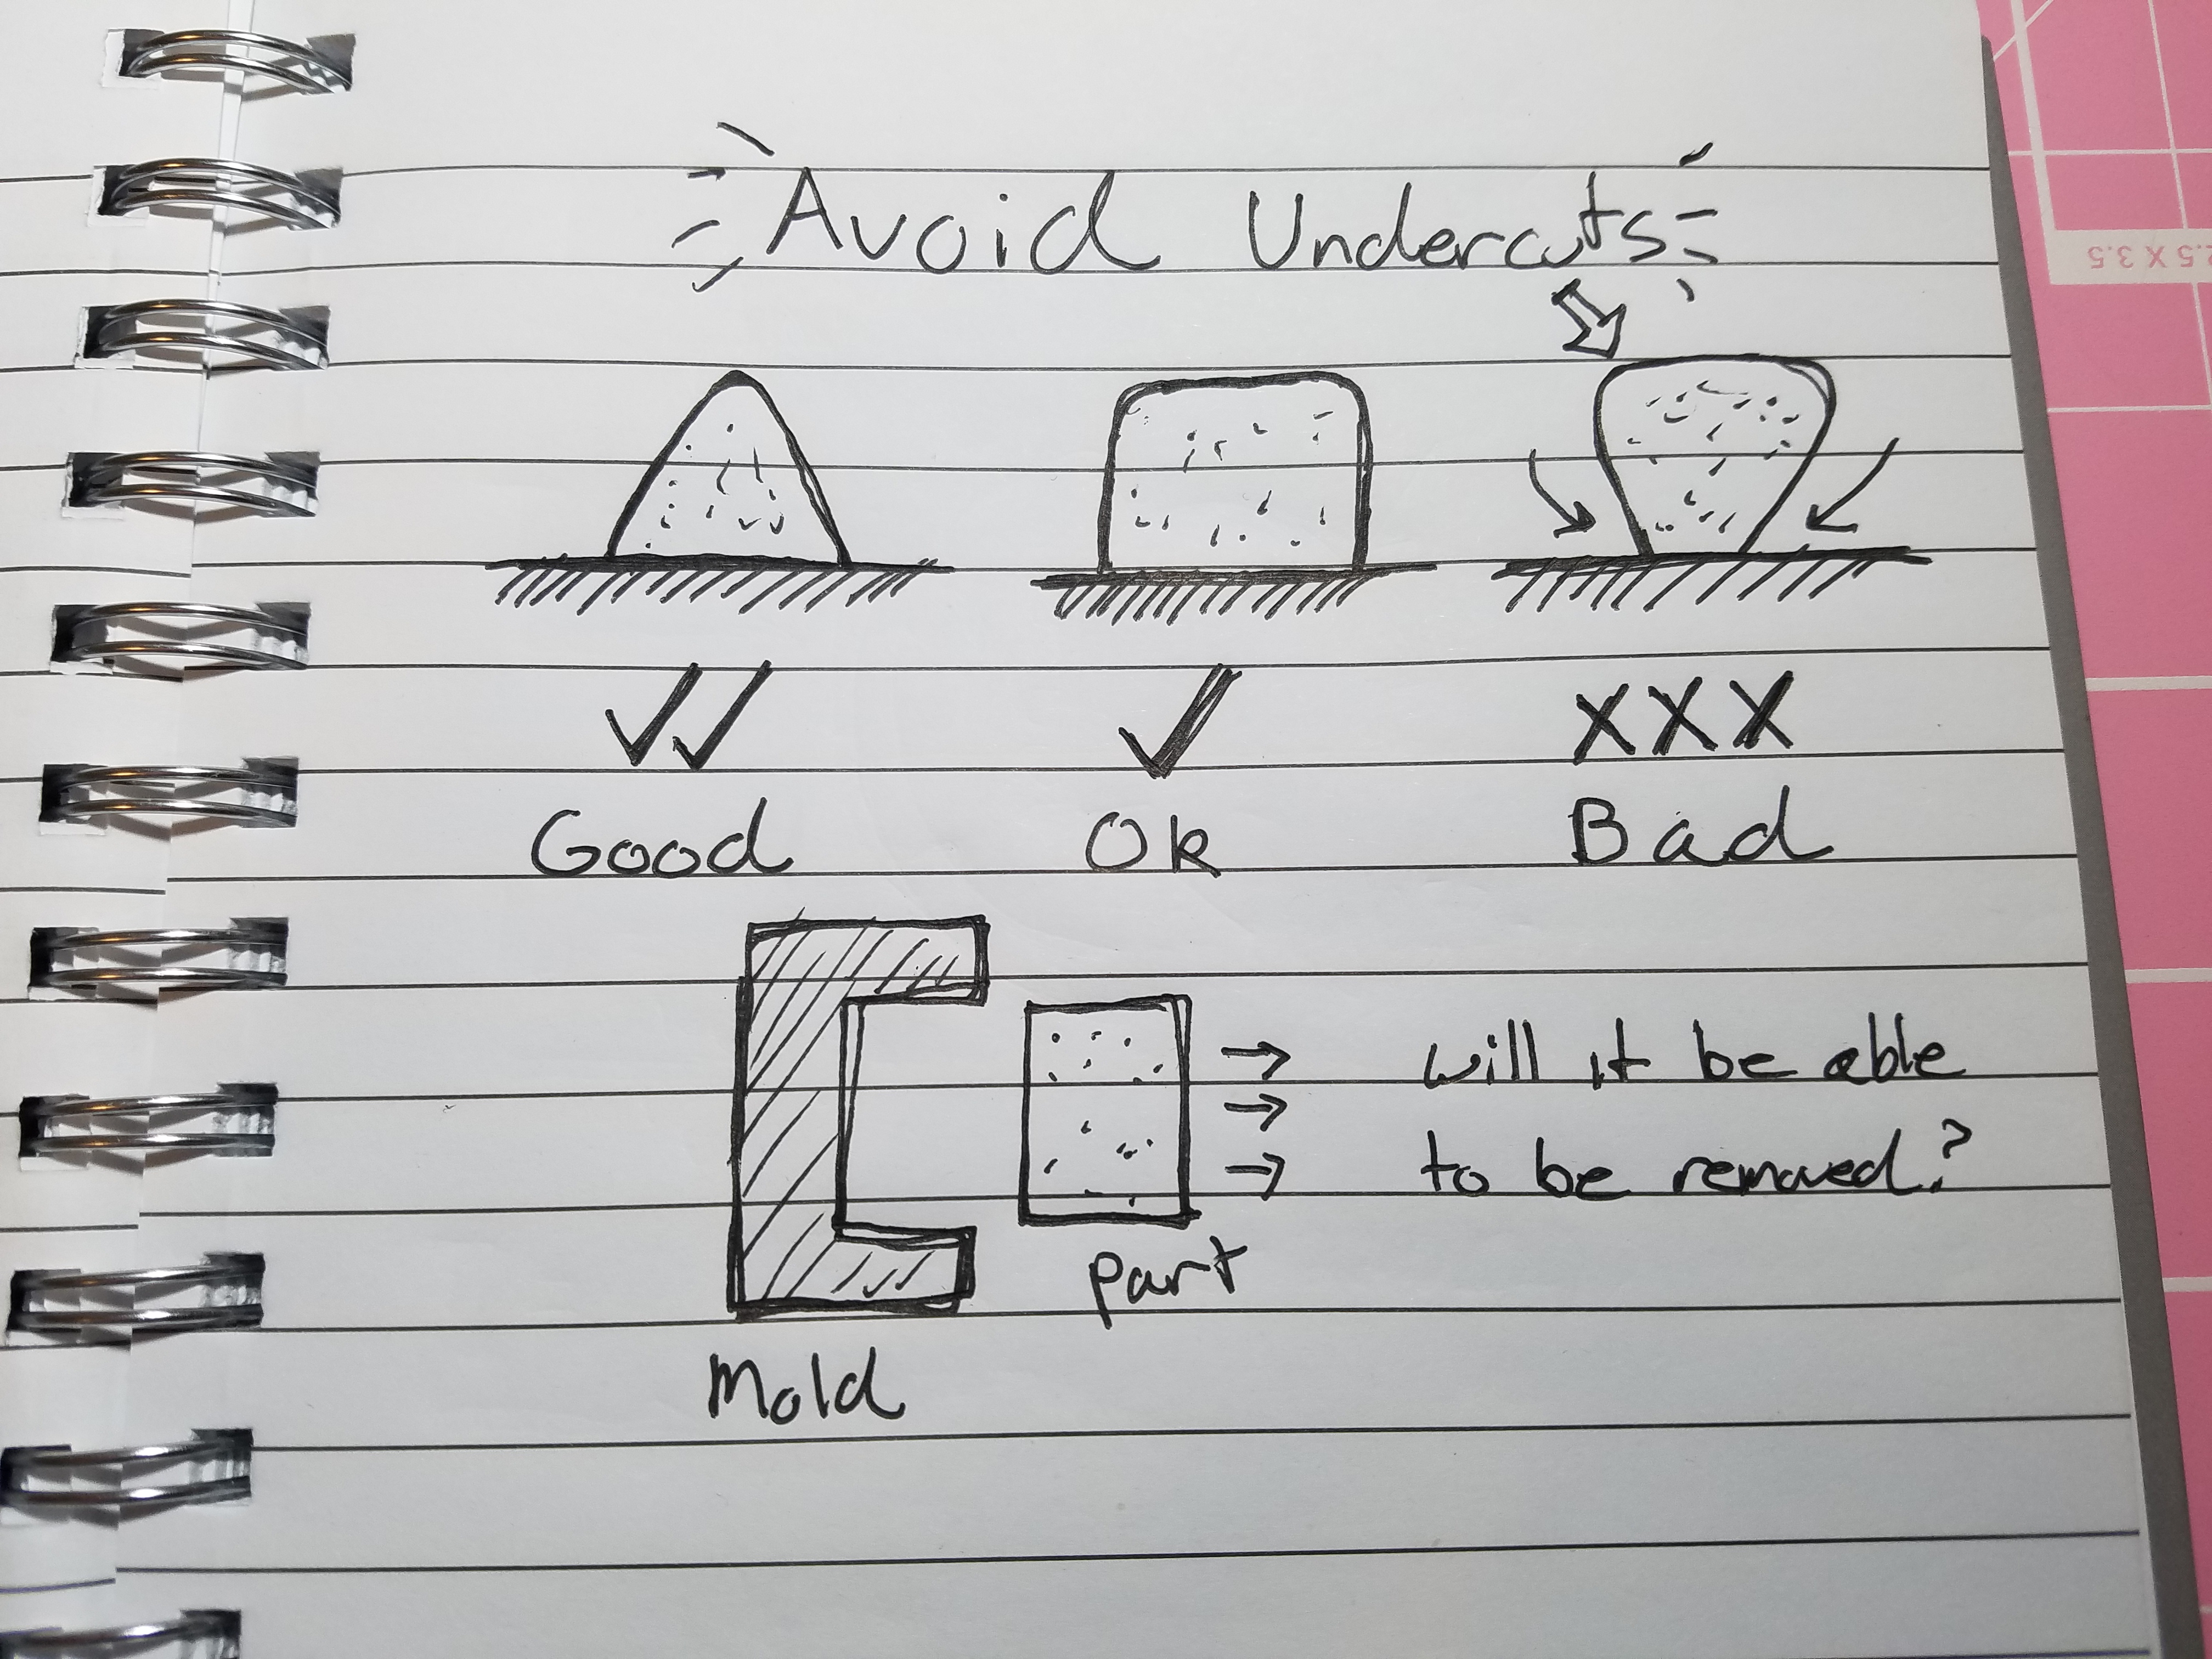 Avoid Undercuts
2.5 X 3.5
Good Ok Bad
will it be able
to be removed?
part
Mold